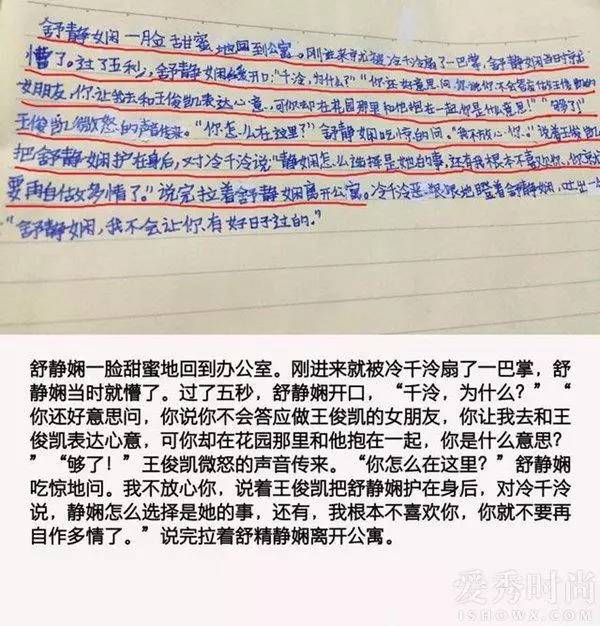 舒静娴一脸甜蜜地回到公寓。刚进来就被冷千泠扇了一巴掌,舒静娴当时就
懵了。过了五秒,舒静娴开口:"千泠,为什么?""你还好意思问,你说你不会答应做王俊凯的
女朋友,你让我去和王俊凯表达心意,可你却在花园那里和他抱在一起你是什么意思!""够了"
王俊凯微怒的声音传来。"你怎么在这里?"舒静娴吃惊的问。"我不放心你。"说着王俊凯
把舒静娴护在身后,对冷千泠说"静娴怎么选择是她的事,还有我根本不喜欢你,你就不
要再自作多情了。"说完拉着舒静娴离开公寓。冷千泠恶狠狠地瞪着舒静娴,吐出一
"舒静娴,我不会让你有好日子过的。"
舒静娴一脸甜蜜地回到办公室。刚进来就被冷千泠扇了一巴掌,舒
静娴当时就懵了。过了五秒,舒静娴开口,“千泠,为什么?”“
你还好意思问,你说你不会答应做王俊凯的女朋友,你让我去和王
俊凯表达心意,可你却在花园那里和他抱在一起,你是什么意思?
”“够了!”王俊凯微怒的声音传来。“你怎么在这里?”舒静娴
吃惊地问。我不放心你,说着王俊凯把舒静娴护在身后,对冷千泠
说,静娴怎么选择是她的事,还有,我根本不喜欢你,你就不要再
自作多情了。”说完拉着舒精静娴离开公寓。
爱秀时尚
ISHOWX.COM